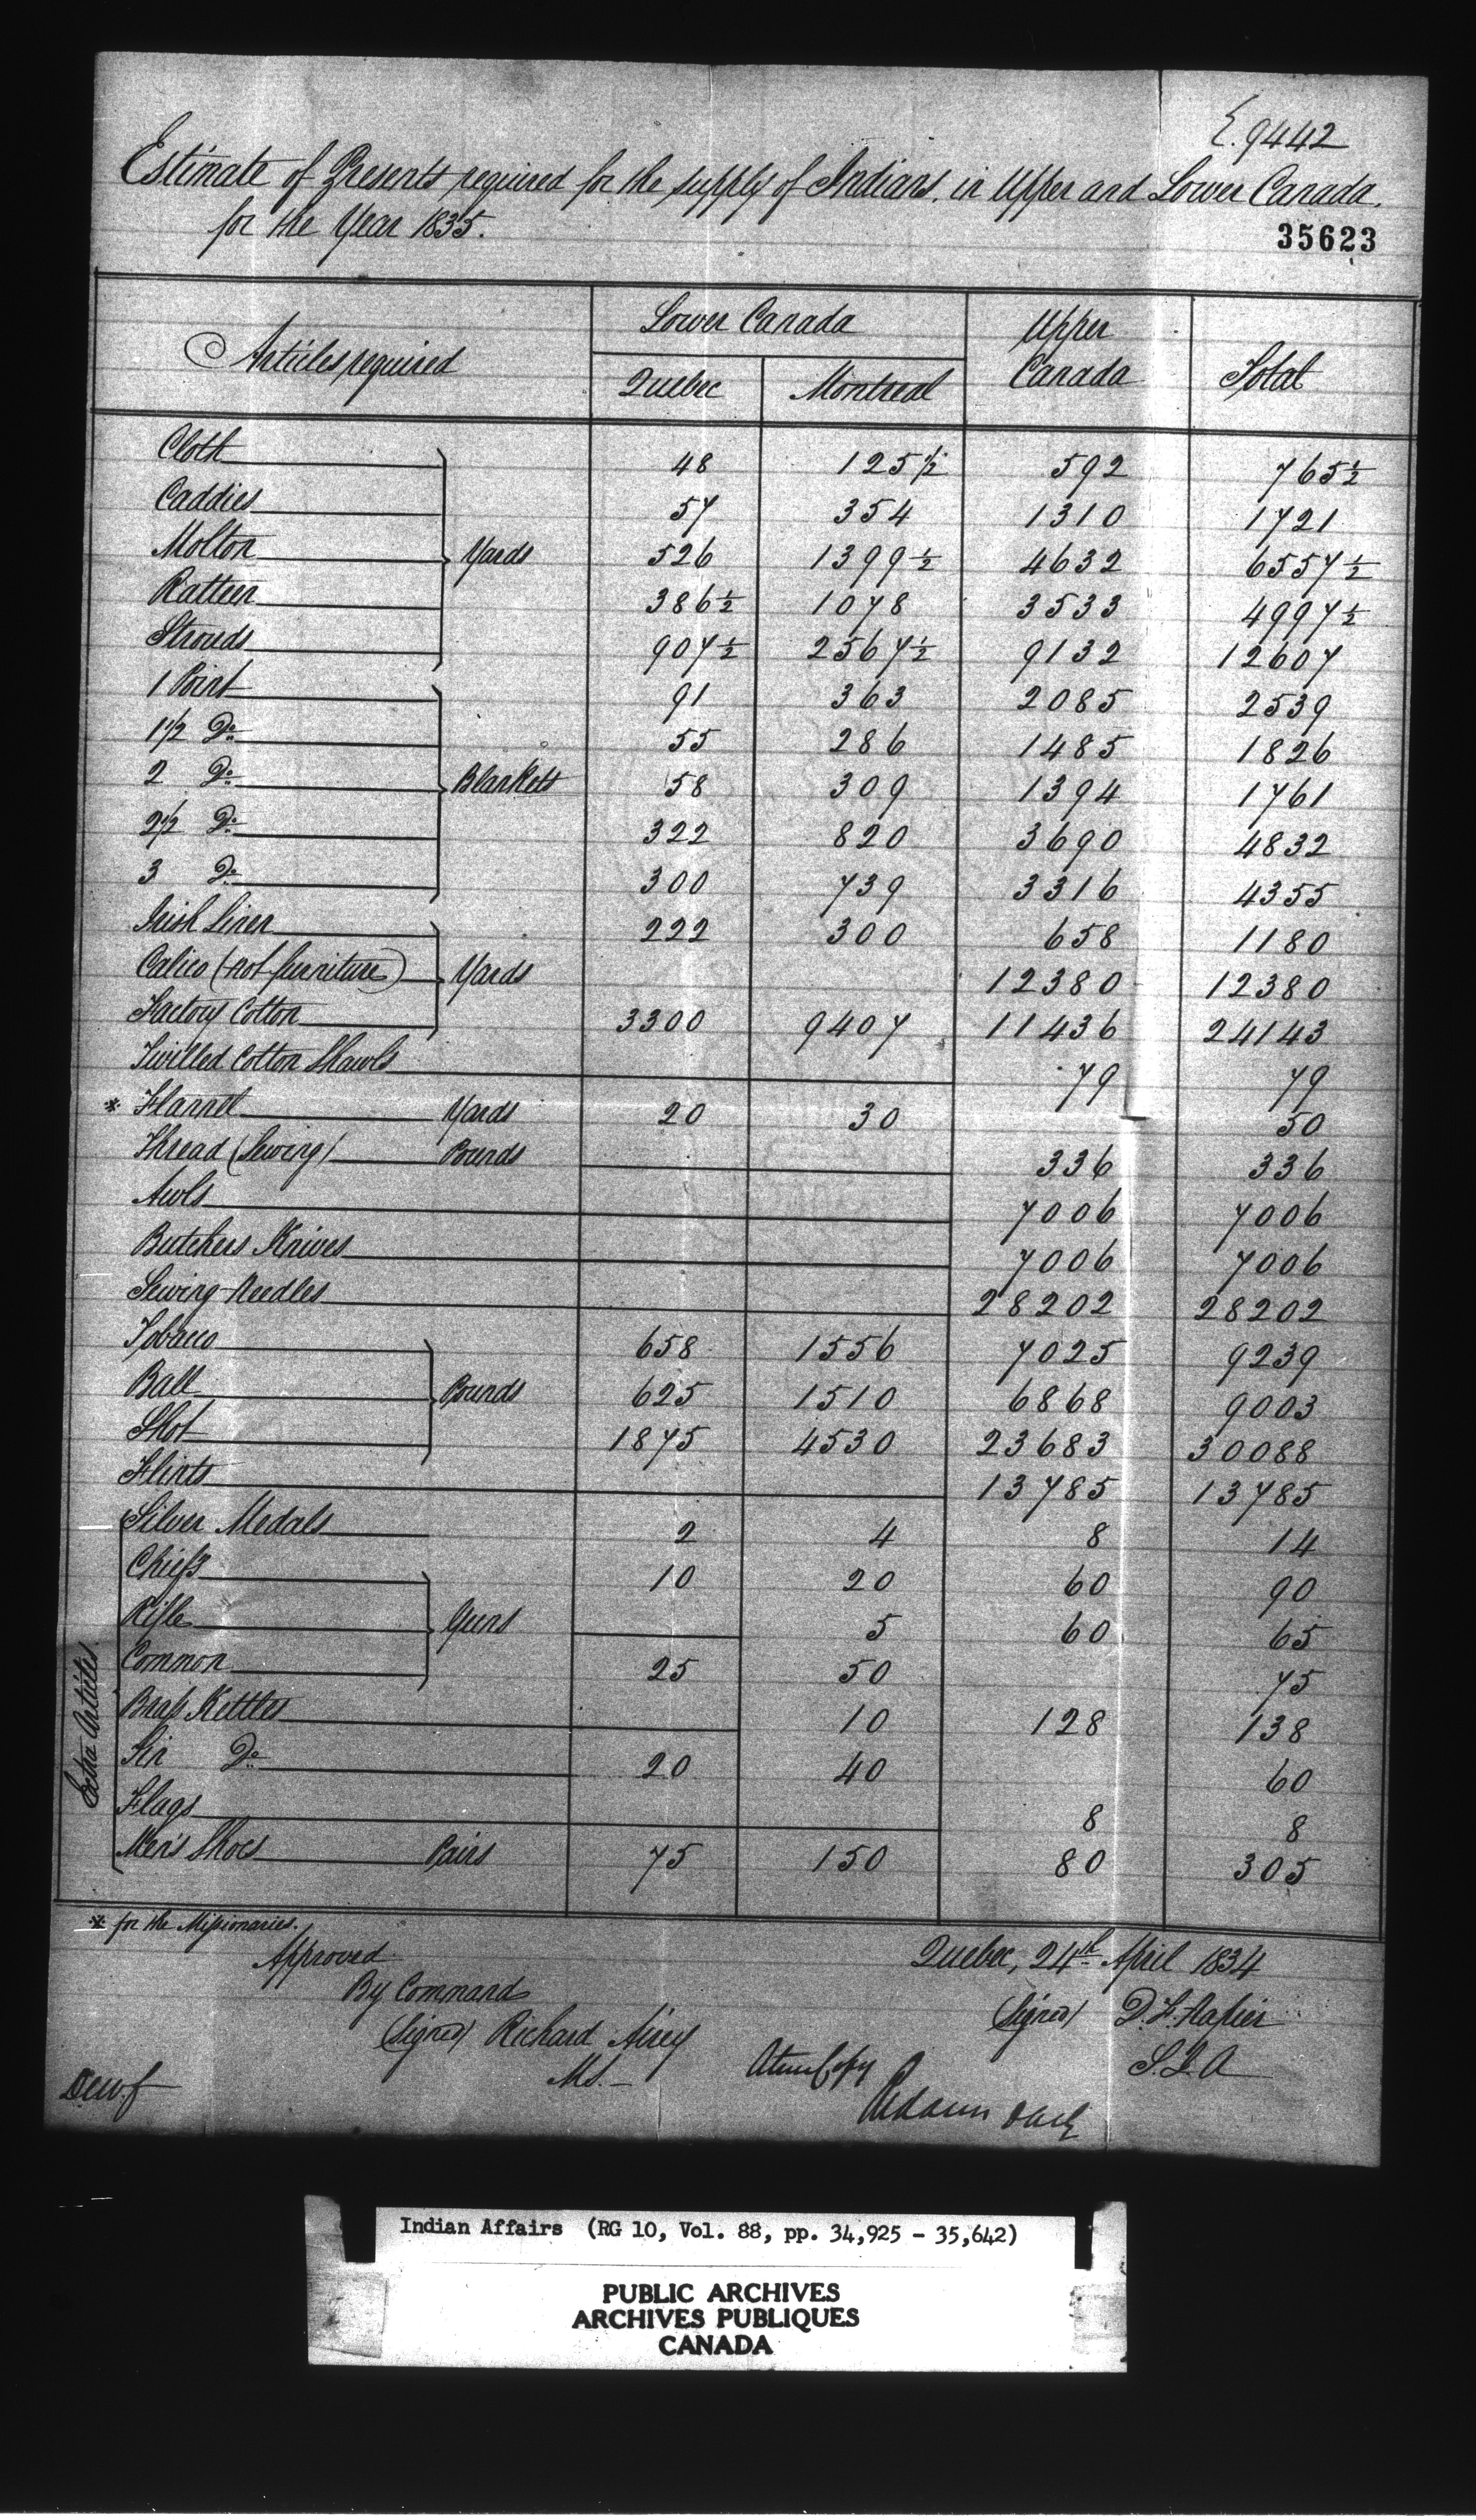 E. 9442
Estimate of Presents required for the supply of Indians, in Upper and Lower Canada,
for the Year 1835.
35623
Articles required Lower Canada Upper Canada Total
Quebec Montreal
Cloth 48 125 1/2 592 765 1/2
Caddies 57 354 1310 1721
Molton Yards 526 1399 1/2 4632 6557 1/2
Ratteen 386 1/2 1078 3533 4997 1/2
Strouds 907 1/2 2567 1/2 9132 12607
1 Point 91 363 2085 2539
1 1/2 Do 55 286 1485 1826
2 Do Blankets 58 309 1394 1761
2 1/2 Do 322 820 3690 4832
3 Do 300 739 3316 4355
Irish Linen 222 300 658 1180
Calico (not furniture) Yards 12380 12380
Factory Cotton 3300 9407 11436 24143
Twilled Cotton Shawls 79 79
* Flannel Yards 20 30 50
Thread (Sewing) Pounds 336 336
Awls 7006 7006
Butchers Knives 7006 7006
Sewing Needles 28202 28202
Tobacco 658 1556 7025 9239
Ball Pounds 625 1510 6868 9003
Shot 1875 4530 23683 30088
Flints 13785 13785
Extra Articles
Silver Medals 2 4 8 14
Chiefs 10 20 60 90
Rifle Guns 5 60 65
Common 25 50 75
Brass Kettles 10 128 138
Tin Do 20 40 60
Flags 8 8
Men's Shoes Pairs 75 150 80 305
* for the Missionaries.
Approved
By Command
(Signed) Richard Airey
MS.
Quebec, 24th April 1834
(Signed) D. F. Napier
S.I.A
A true Copy
Indian Affairs (RG 10, Vol. 88, pp. 34,925 - 35,642)
PUBLIC ARCHIVES
ARCHIVES PUBLIQUES
CANADA